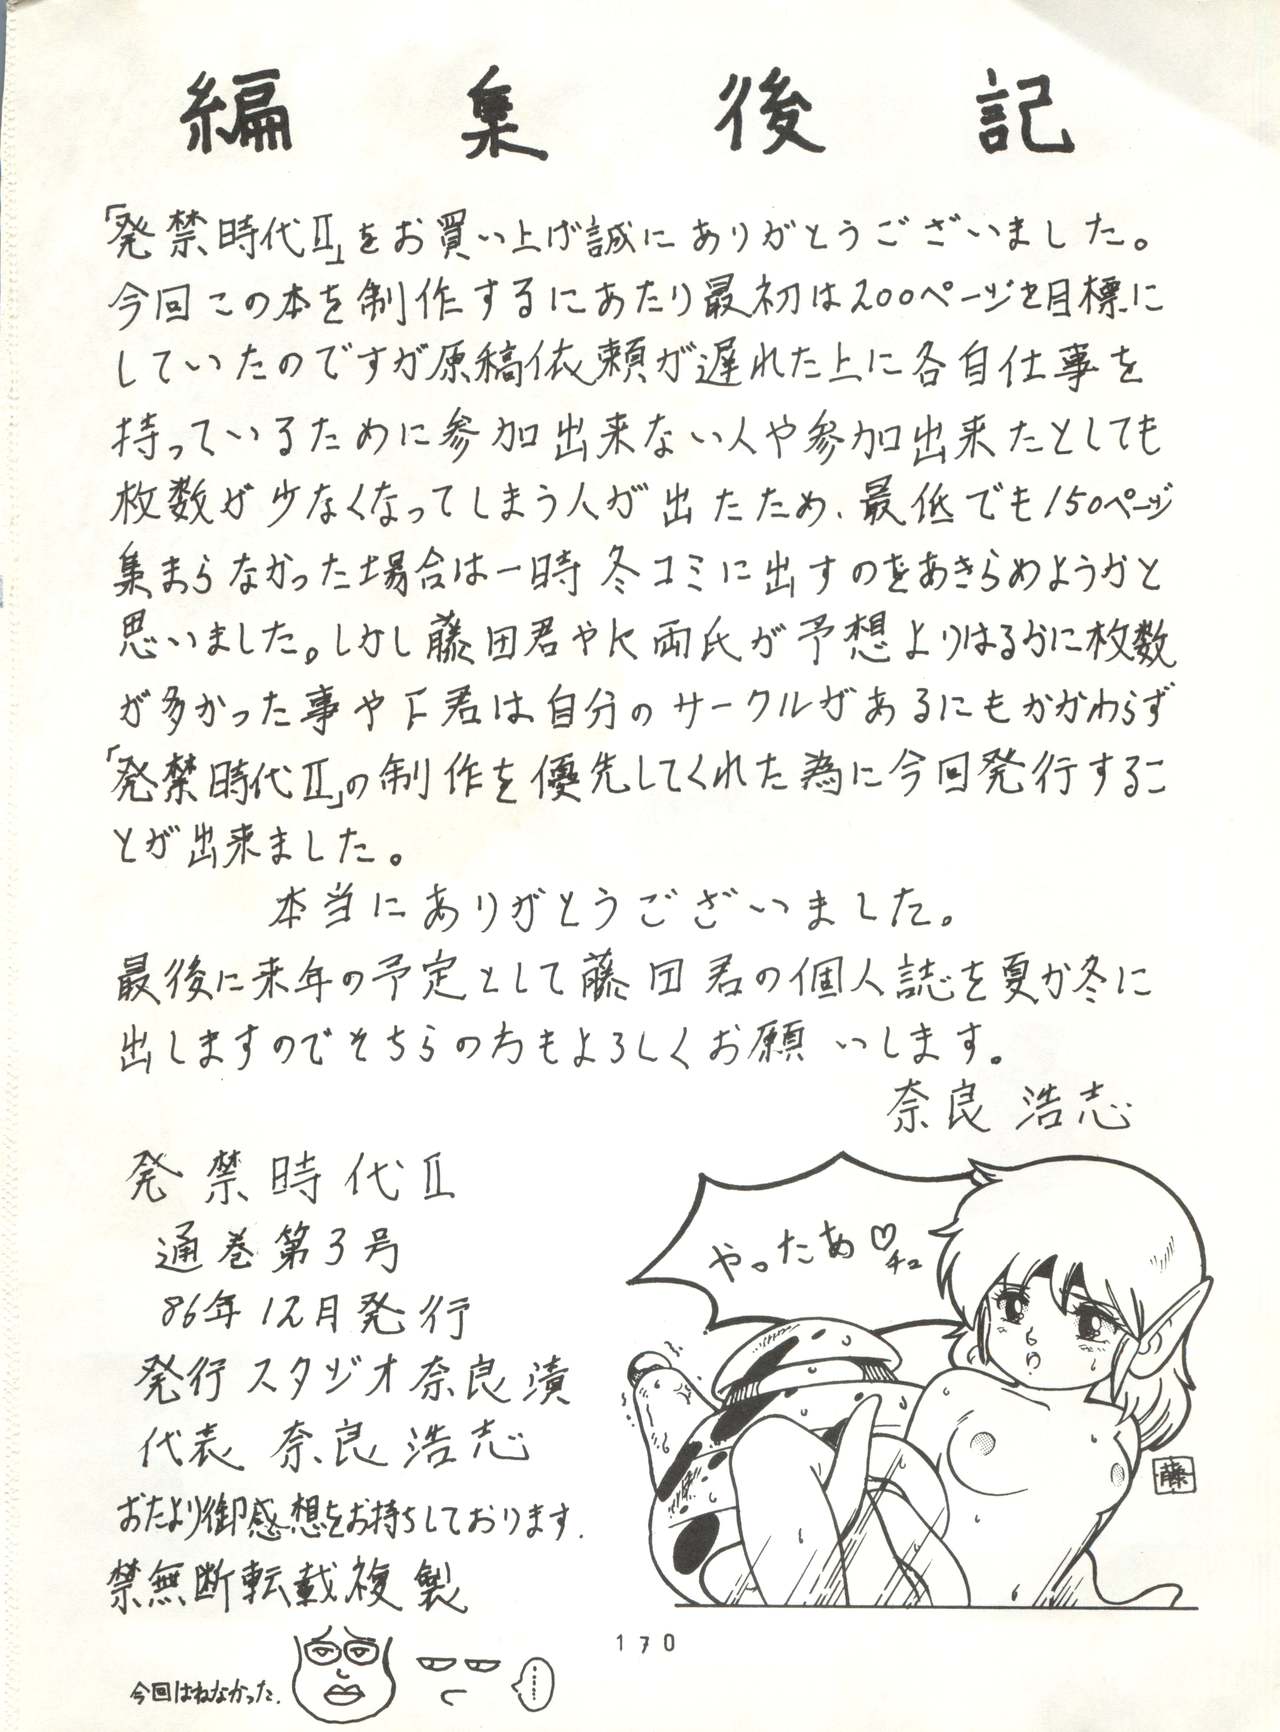 編集後記
「発禁時代Ⅱ」をお買い上げ誠にありがとうございました。
今回この本を制作するにあたり最初は200ページを目標に
していたのですが原稿依頼が遅れた上に各自仕事を
持っているために参加出来ない人や参加出来たとしても
枚数が少なくなってしまう人が出たため、最低でも150ページ
集まらなかった場合は一時冬コミに出すのをあきらめようかと
思いました。しかし藤田君やK両氏が予想よりはるかに枚数
が多かった事やF君は自分のサークルがあるにもかかわらず
「発禁時代Ⅱ」の制作を優先してくれた為に今回発行するこ
とが出来ました。
本当にありがとうございました。
最後に来年の予定として藤田君の個人誌を夏か冬に
出しますのでそちらの方もよろしくお願いします。
奈良浩志
発禁時代Ⅱ
通巻第3号
86年12月発行
発行スタジオ奈良漬
代表 奈良浩志
おたより御感想をお持ちしております.
禁無断転載複製
やったあ♡
チュ
藤
170
今回はねなかった.